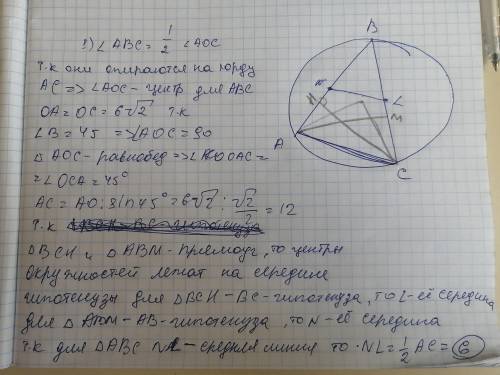 1) ∠ABC = 1/2 ∠AOC
т.к они опираются на хорду
AC => ∠AOC - центр для ABC
OA = OC = 6√2 т.к
∠B = 45 => ∠AOC = 90
△ AOC - равнобед => ∠OAC =
= ∠OCA = 45°
AC = AO : sin 45° = 6√2 : √2/2 = 12
т.к
△BCH и △ABM - прямоуг, то центры
окружностей лежат на середине
гипотенузы для △BCH - BC - гипотенуза, то L - её середина
для △ABM - AB - гипотенуза, то N - её середина
т.к для △ABC NL - средняя линия то NL = 1/2 AC = 6
B
N
L
H
M
A
C